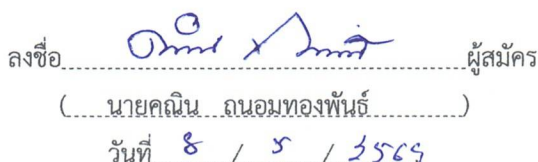 ลงชื่อ ผู้สมัคร
( นายคณิน ถนอมทองพันธ์ )
วันที่ 8 / 5 / 2569